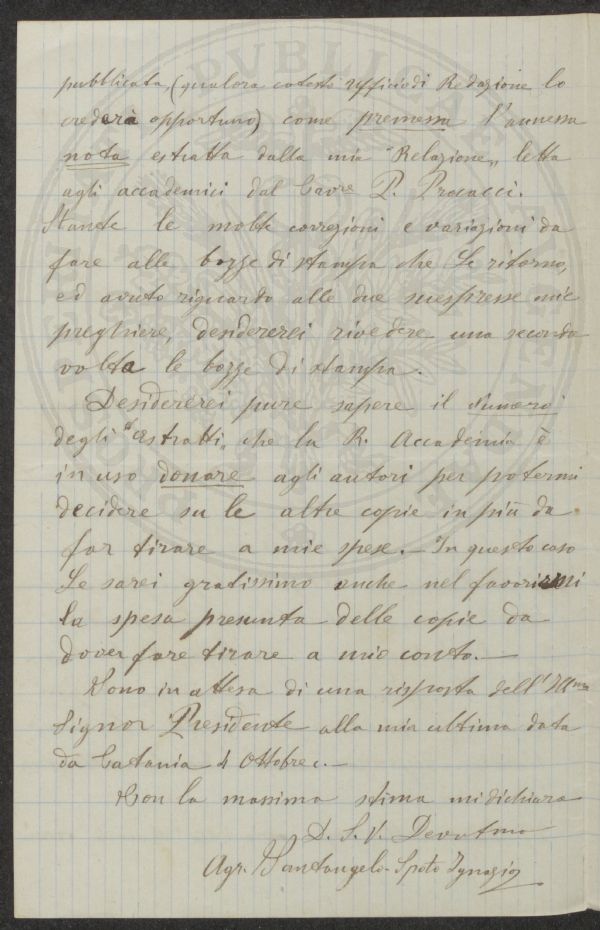 pubblicata, (qualora cotesto Ufficio di Redazione lo
crederà opportuno) come premessa l'annessa
nota estratta dalla mia "Relazione„ letta
agli accademici dal Cavre P. Procacci.
Stante le molte correzioni e variazioni da
fare alle bozze di stampa che Le ritorno,
ed avuto riguardo alle due suespresse mie
preghiere, desidererei rivedere una seconda
volta le bozze di stampa.
Desidererei pure sapere il numero
degli "Estratti„ che la R. Accademia è
in uso donare agli autori per potermi
decidere su le altre copie in più da
far tirare a mie spese. – In questo caso
Le sarei gratissimo anche nel favorirmi
la spesa presunta delle copie da
dover fare tirare a mio conto. –
Sono in attesa di una risposta dell'Illmo
Signor Presidente alla mia ultima data
da Catania 4 Ottobre c. –
Con la massima stima mi dichiaro
D. S. V. Devotmo
Agr. Santangelo-Spoto Ignazio
PUBLICAE